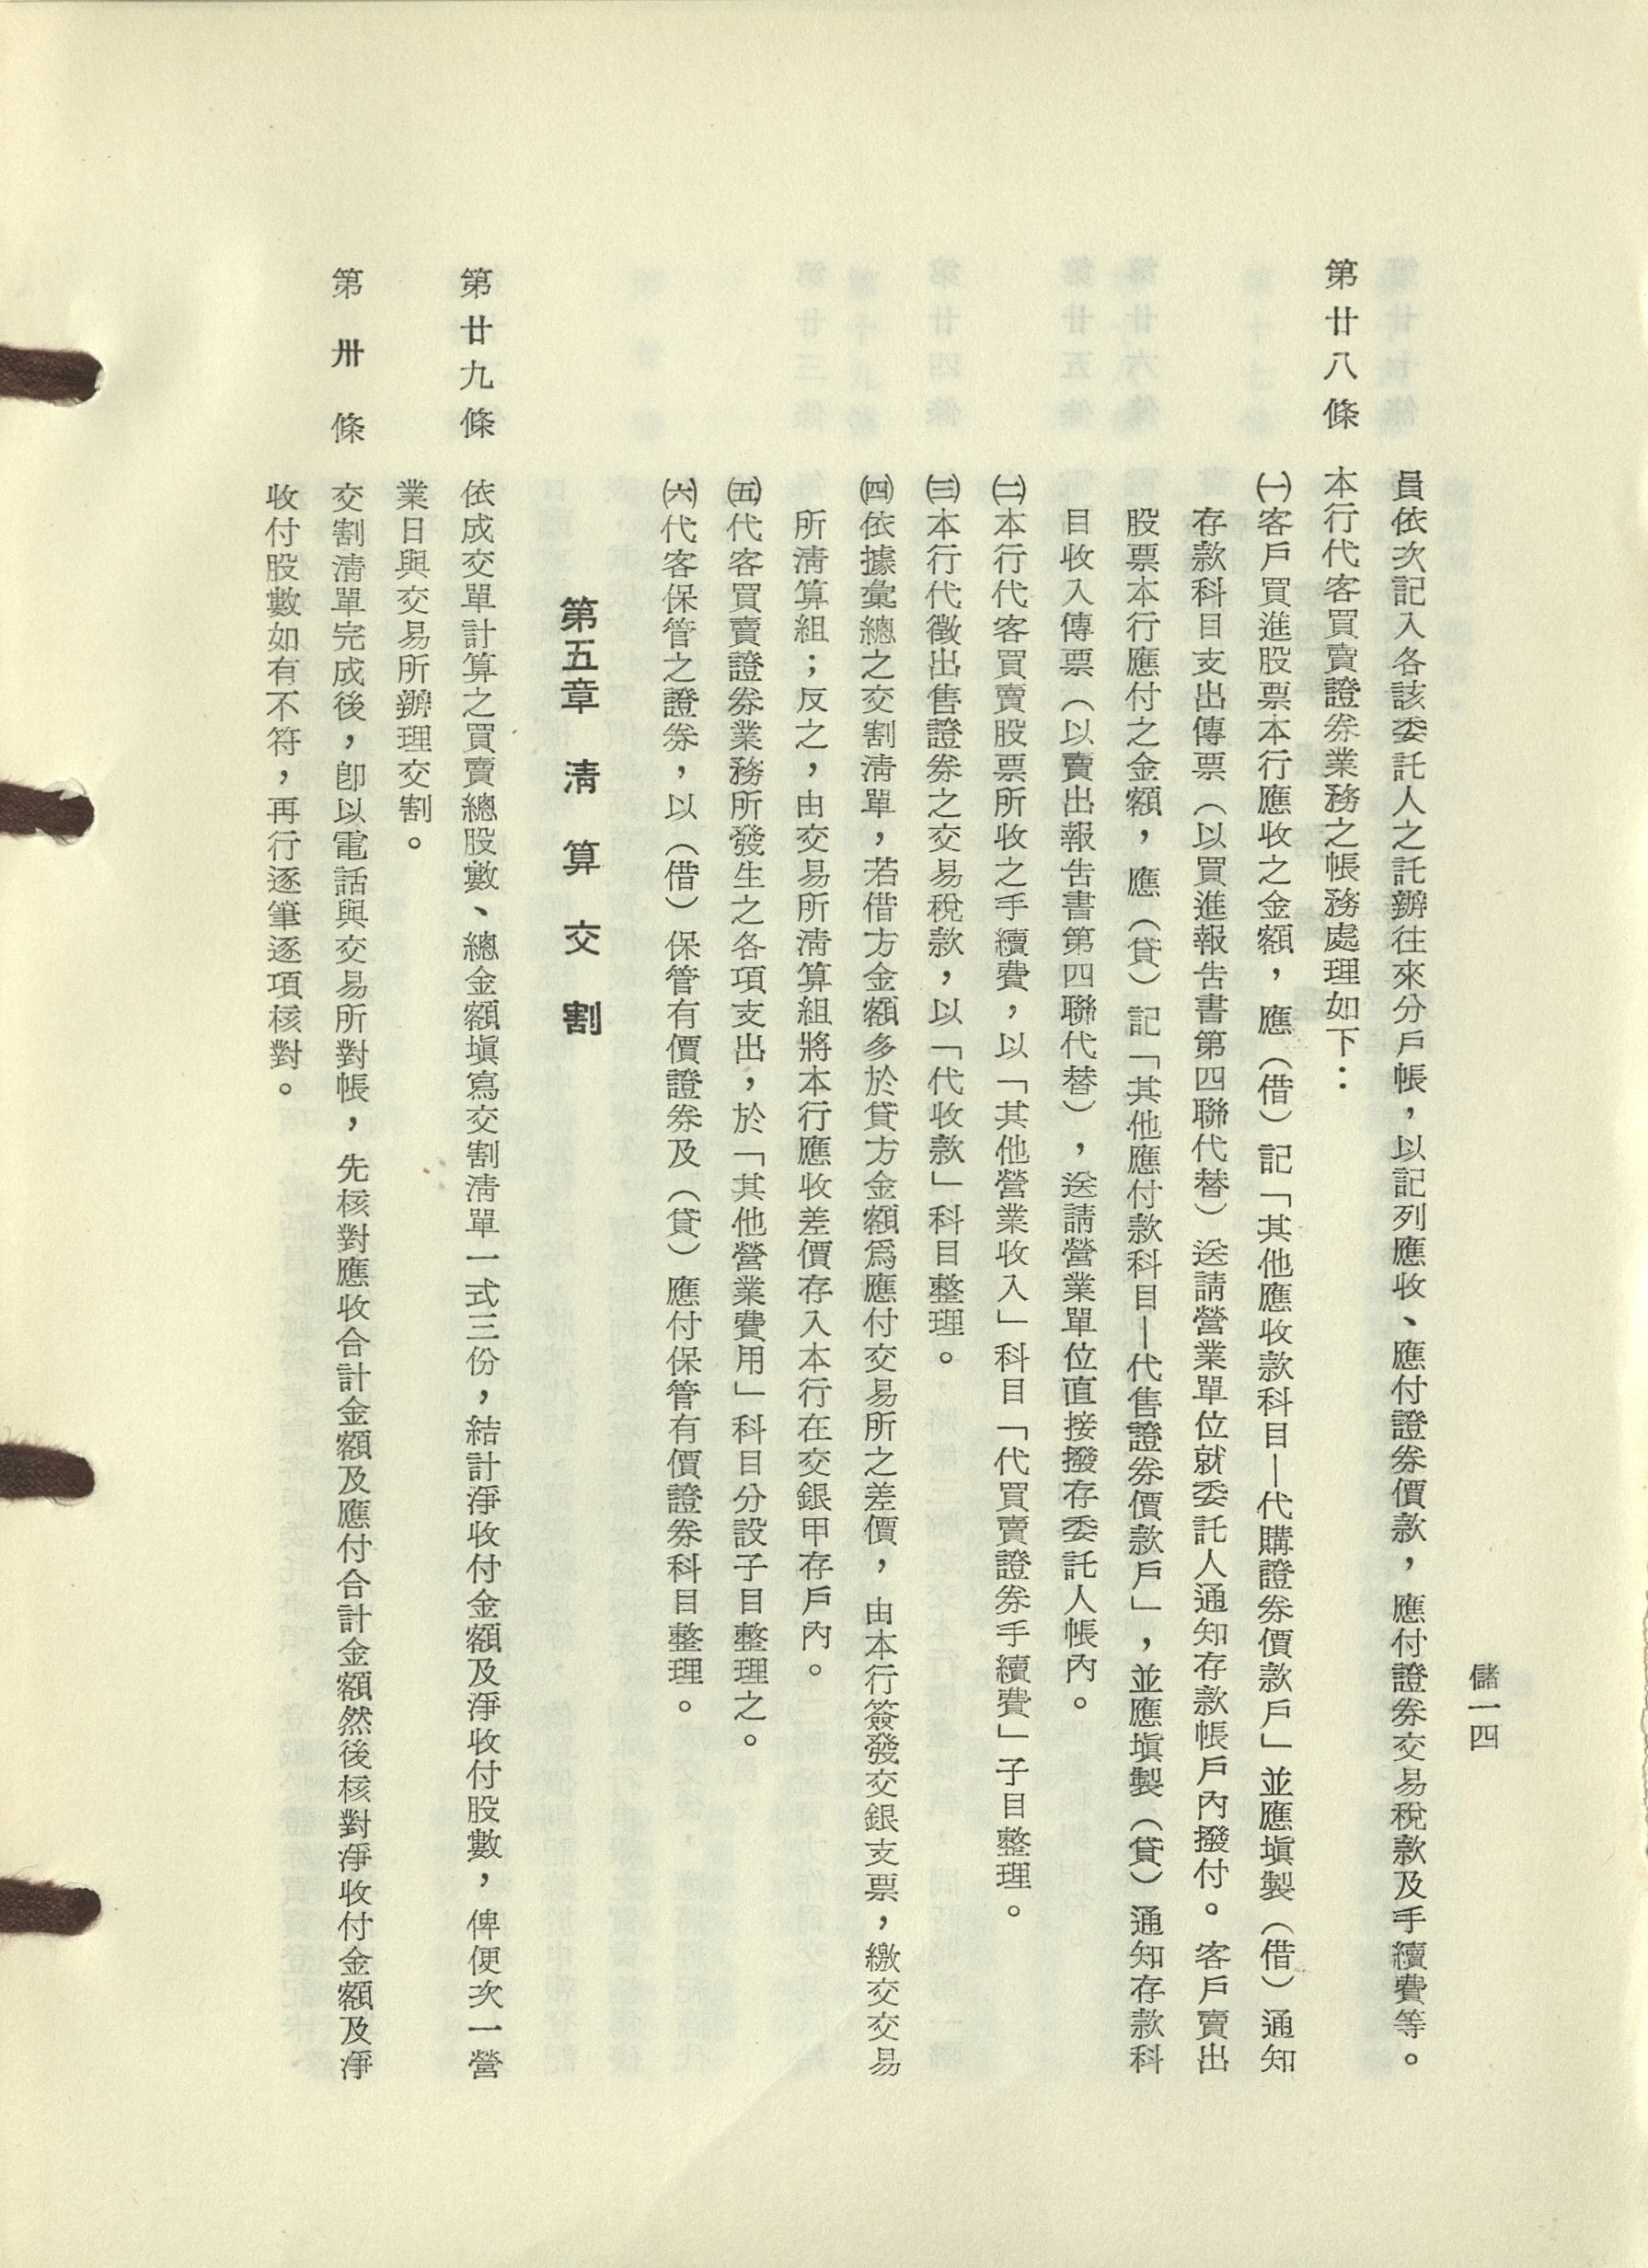 儲一四
員依次記入各該委託人之託辦往來分戶帳，以記列應收、應付證券價款，應付證券交易稅款及手續費等。
第廿八條　本行代客買賣證券業務之帳務處理如下：
㈠客戶買進股票本行應收之金額，應（借）記「其他應收款科目—代購證券價款戶」並應塡製（借）通知
存款科目支出傳票（以買進報告書第四聯代替）送請營業單位就委託人通知存款帳戶內撥付。客戶賣出
股票本行應付之金額，應（貸）記「其他應付款科目—代售證券價款戶」，並應塡製（貸）通知存款科
目收入傳票（以賣出報告書第四聯代替），送請營業單位直接撥存委託人帳內。
㈡本行代客買賣股票所收之手續費，以「其他營業收入」科目「代買賣證券手續費」子目整理。
㈢本行代徵出售證券之交易稅款，以「代收款」科目整理。
㈣依據彙總之交割淸單，若借方金額多於貸方金額爲應付交易所之差價，由本行簽發交銀支票，繳交交易
所淸算組；反之，由交易所淸算組將本行應收差價存入本行在交銀甲存戶內。
㈤代客買賣證券業務所發生之各項支出，於「其他營業費用」科目分設子目整理之。
㈥代客保管之證券，以（借）保管有價證券及（貸）應付保管有價證券科目整理。
第五章　淸算交割
第廿九條　依成交單計算之買賣總股數、總金額塡寫交割淸單一式三份，結計淨收付金額及淨收付股數，俾便次一營
業日與交易所辦理交割。
第卅條　交割淸單完成後，卽以電話與交易所對帳，先核對應收合計金額及應付合計金額然後核對淨收付金額及淨
收付股數如有不符，再行逐筆逐項核對。